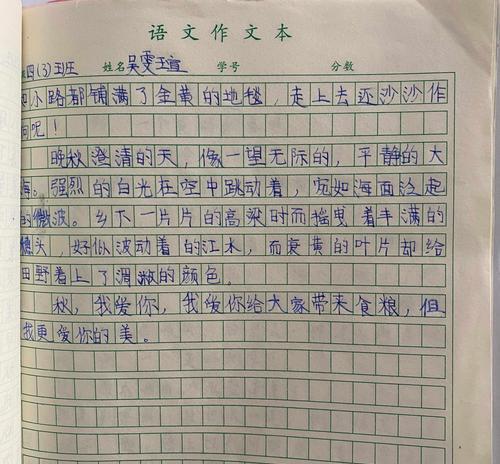 语文作文本
四(3)班 姓名吴雯瑄 学号 分数
小路都铺满了金黄的地毯，走上去还沙沙作
响呢！
晚秋澄清的天，像一望无际的，平静的大
海。强烈的白光在空中跳动着，宛如海面泛起
的微波。乡下一片片的高梁时而摇曳着丰满的
穗头，好似波动着的江水，而衰黄的叶片却给
田野着上了凋淑的颜色。
秋，我爱你，我爱你给大家带来食粮，但
我更爱你的美。